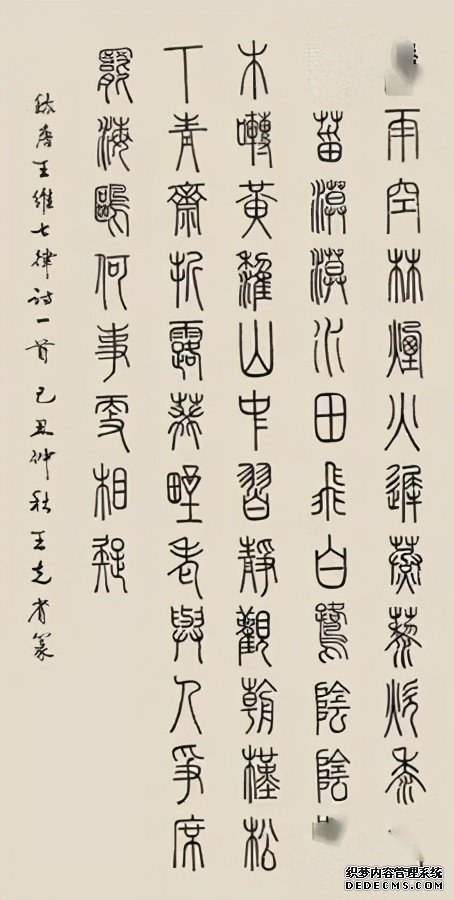 雨空林煙火遲蒸藜炊黍
菑漠漠水田飛白鷺陰陰
木囀黃鸝山中習靜觀朝槿松
丅青齋折露葵野老與人爭席
罷海鷗何事更相疑
唐王維七律詩一首 己丑仲秋 王篆
织梦内容管理系统
DEDECMS.COM